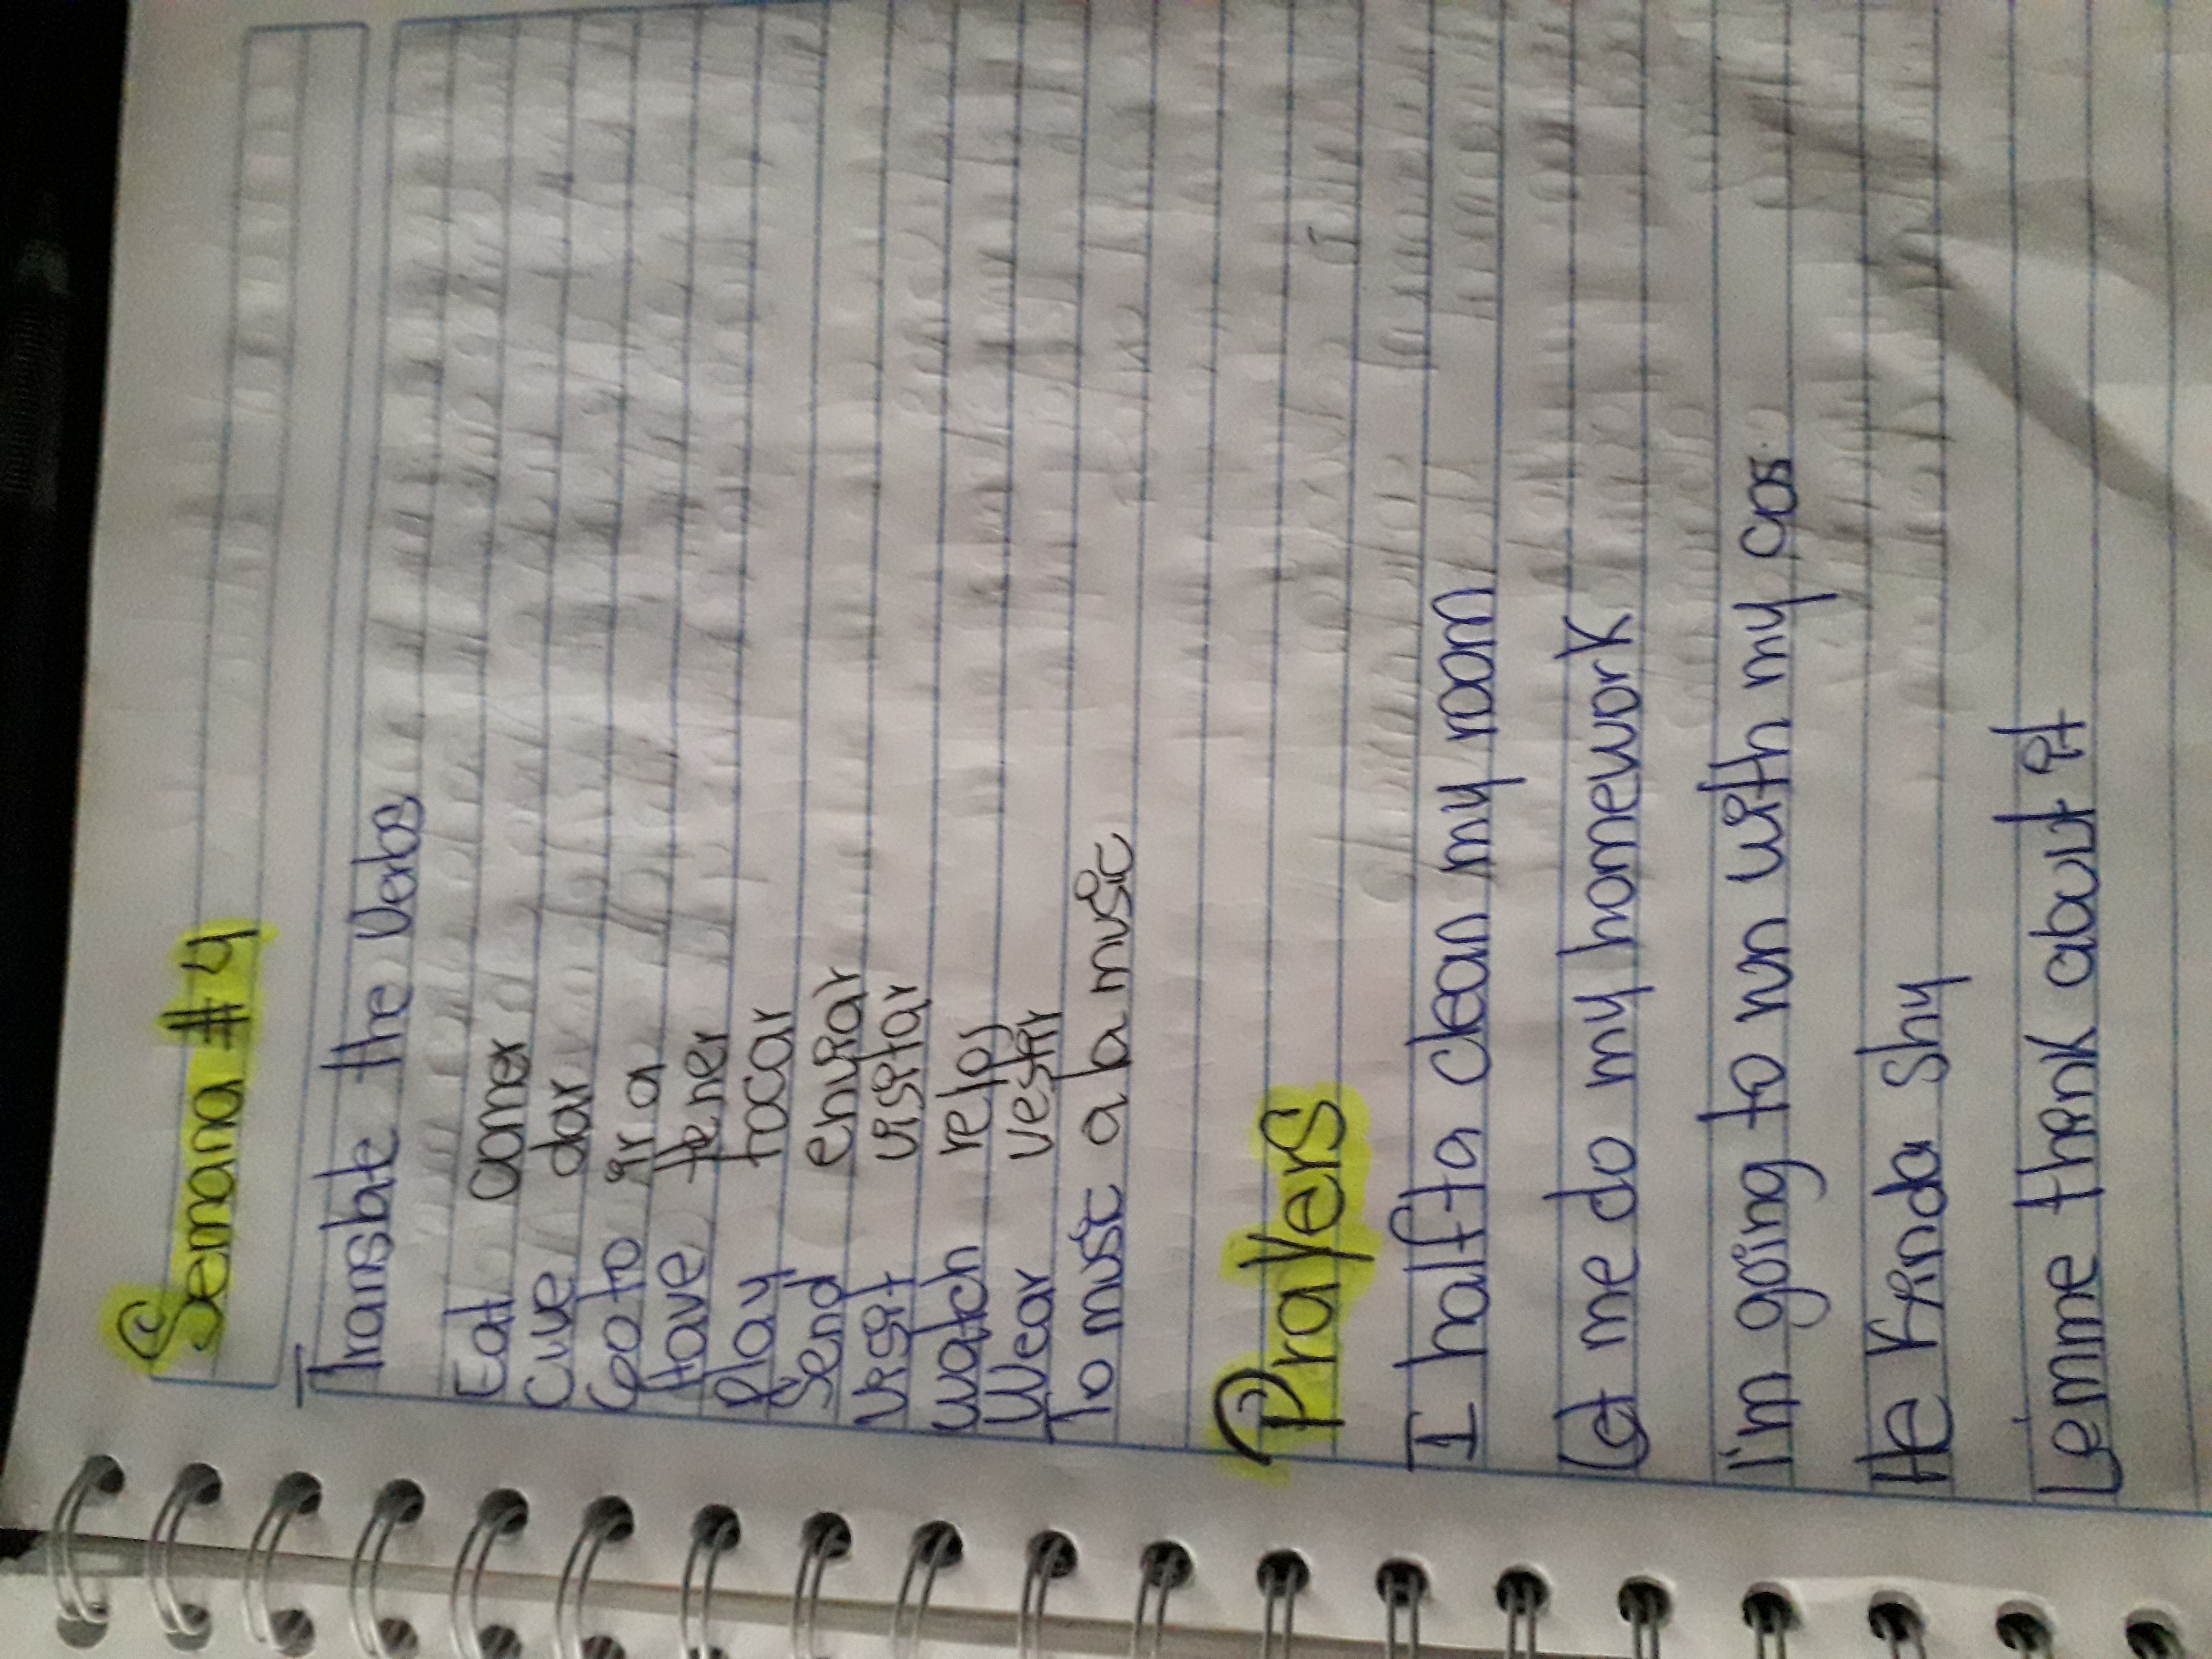 Semana #4
Translate the Verbs
Eat comer
Give dar
Go to ir a
Have tener
Play tocar
Send enviar
Visit visitar
Watch reloj
Wear vestir
To music a la music
Prayers
I halfta clean my room
Let me do my homework
I'm going to run with my cos
He Kinda Shy
Lemme think about it